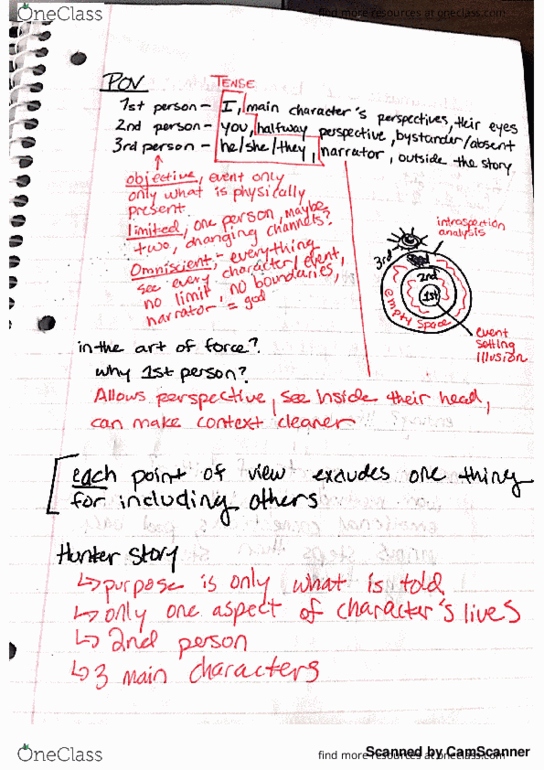 OneClass
find more resources at oneclass.com
POV
TENSE
1st person - I, main character's perspectives, their eyes
2nd person - you, halfway perspective, bystander/absent
3rd person - he/she/they, narrator, outside the story
objective, event only
only what is physically
present.
limited, one person, maybe
two, changing channels?
Omniscient, - everything
see every character/event,
no limit, no boundaries,
narrator = god
introspection
analysis
3rd
2nd
1st
empty space
event
setting
illusion
in the art of force?
why 1st person?
Allows perspective, see inside their head,
can make context cleaner
each point of view excludes one thing
for including others
Hunter story
↳ purpose is only what is told
↳ only one aspect of character's lives
↳ 2nd person
↳ 3 main characters
OneClass
find more resources at oneclass.com
Scanned by CamScanner